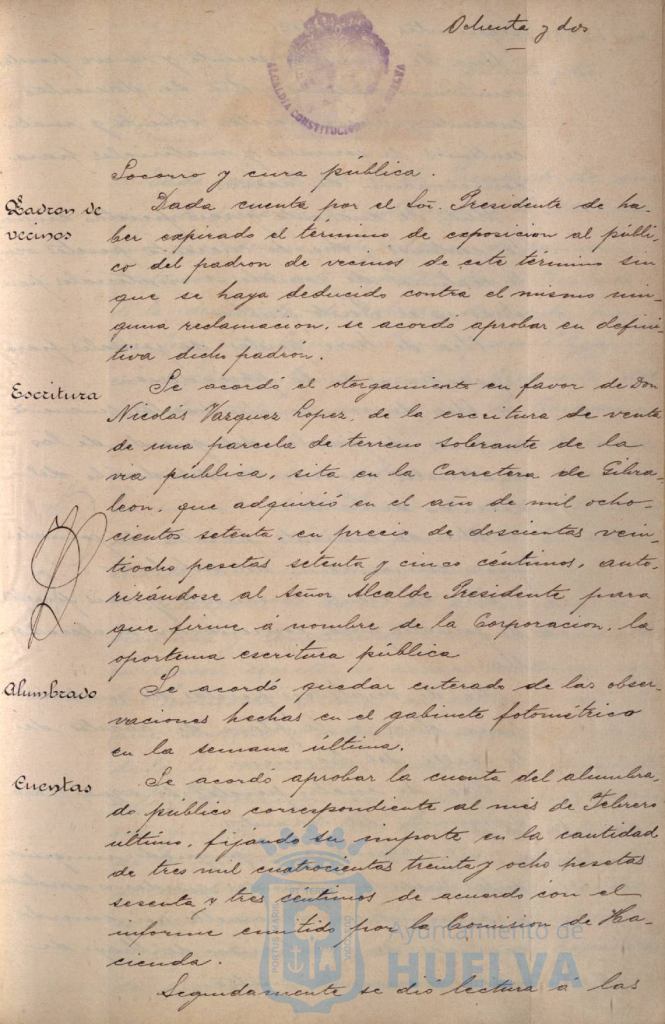 Ochenta y dos
ALCALDIA CONSTITUCIONAL DE HUELVA
Socorro y cura pública.
Padron de
vecinos
Dada cuenta por el Sor. Presidente de ha-
ber expirado el término de exposicion al públi-
co del padron de vecinos de este término sin
que se haya deducido contra el mismo nin-
guna reclamacion, se acordó aprobar en defini-
tiva dicho padrón.
Escritura
Se acordó el otorgamiento en favor de Don
Nicolás Vazquez Lopez, de la escritura de venta
de una parcela de terreno sobrante de la
via pública, sita en la Carretera de Gibra-
leon, que adquirió en el año de mil ocho-
cientos setenta, en precio de doscientas vein-
tiocho pesetas setenta y cinco céntimos, auto-
rizándose al Señor Alcalde Presidente para
que firme á nombre de la Corporacion, la
oportuna escritura pública
Alumbrado
Se acordó quedar enterado de las obser-
vaciones hechas en el gabinete fotométrico
en la semana última.
Cuentas
Se acordó aprobar la cuenta del alumbra-
do público correspondiente al mes de Febrero
último, fijando su importe en la cantidad
de tres mil cuatrocientas treinta y ocho pesetas
sesenta y tres céntimos de acuerdo con el
informe emitido por la Comision de Ha-
cienda.
Segundamente se dió lectura á las
Ayuntamiento de
HUELVA